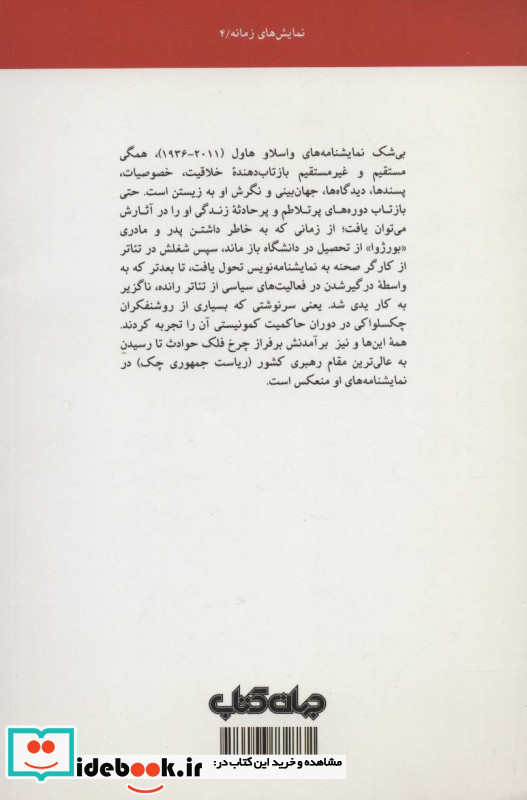 نمایش‌های زمانه/۴
بی‌شک نمایشنامه‌های واسلاو هاول (۲۰۱۱-۱۹۳۶)، همگی
مستقیم و غیرمستقیم بازتاب‌دهندهٔ خلاقیت، خصوصیات،
پسندها، دیدگاه‌ها، جهان‌بینی و نگرش او به زیستن است. حتی
بازتاب دوره‌های پرتلاطم و پرحادثهٔ زندگی او را در آثارش
می‌توان یافت؛ از زمانی که به خاطر داشتن پدر و مادری
«بورژوا» از تحصیل در دانشگاه باز ماند، سپس شغلش در تئاتر
از کارگر صحنه به نمایشنامه‌نویس تحول یافت، تا بعدتر که به
واسطهٔ درگیرشدن در فعالیت‌های سیاسی از تئاتر رانده، ناگزیر
به کار یدی شد. یعنی سرنوشتی که بسیاری از روشنفکران
چکسلواکی در دوران حاکمیت کمونیستی آن را تجربه کردند.
همهٔ این‌ها و نیز برآمدنش برفراز چرخ فلک حوادث تا رسیدن
به عالی‌ترین مقام رهبری کشور (ریاست جمهوری چک) در
نمایشنامه‌های او منعکس است.
جهان کتاب
مشاهده و خرید این کتاب در:
idebook.ir